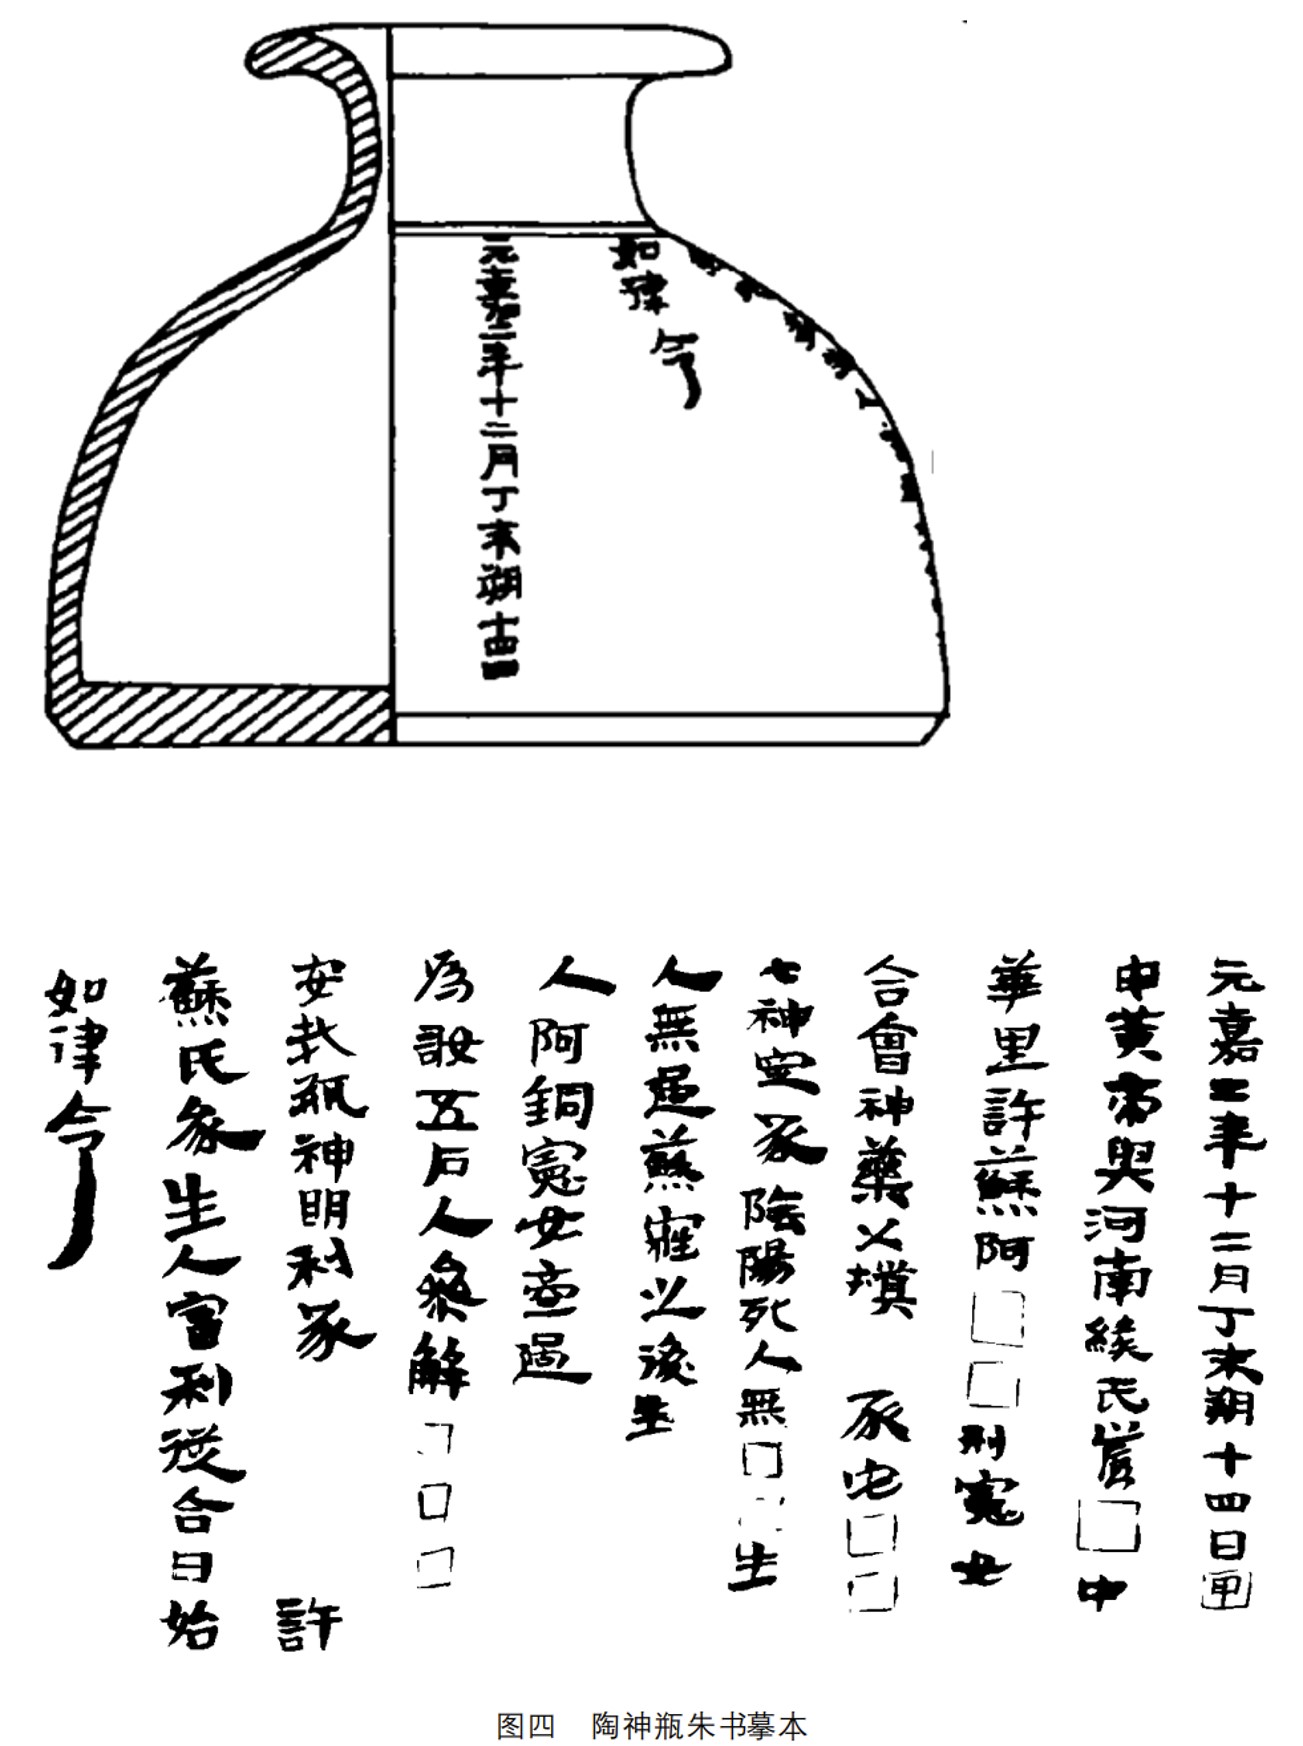 元嘉二年十二月丁未朔十四日
如律令
元嘉二年十二月丁未朔十四日甲
申黃帝與河南緱氏□中
華里許蘇阿□□刑憲女
合會神藥以填冢宅□□
七神定冢陰陽死人無□□生
人無過蘇寤之後生
人阿銅憲女過
為設五石人參解□□□
安瓶神明利冢許
蘇氏家生人富利從合日始
如律令
图四 陶神瓶朱书摹本